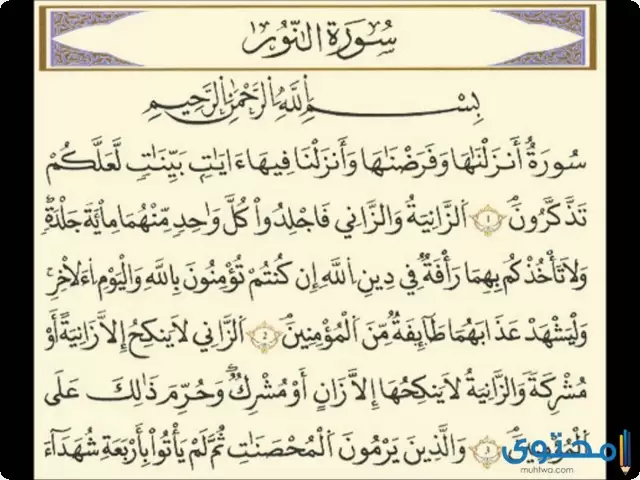 سُورَةُ النُّورِ
بِسْمِ اللَّهِ الرَّحْمَٰنِ الرَّحِيمِ
سُورَةٌ أَنزَلْنَاهَا وَفَرَضْنَاهَا وَأَنزَلْنَا فِيهَا ءَايَاتٍ بَيِّنَاتٍ لَّعَلَّكُمْ
تَذَّكَّرُونَ ١ اَلزَّانِيَةُ وَالزَّانِي فَاجْلِدُواْ كُلَّ وَاحِدٍ مِّنْهُمَا مِاْئَةَ جَلْدَةٍ
وَلَا تَأْخُذْكُم بِهِمَا رَأْفَةٌ فِي دِينِ اِللَّهِ إِن كُنتُمْ تُؤْمِنُونَ بِاللَّهِ وَالْيَوْمِ اِءَلَاخِرِ
وَلْيَشْهَدْ عَذَابَهُمَا طَآئِفَةٌ مِّنَ اَلْمُؤْمِنِينَ 2 اَلزَّانِي لَا يَنكِحُ إِلَّا زَانِيَةً أَوْ
مُشْرِكَةً وَالزَّانِيَةُ لَا يَنكِحُهَا إِلَّا زَانٍ أَوْ مُشْرِكٌ وَحُرِّمَ ذَٰلِكَ عَلَى
اَلْمُؤْمِنِينَ 3 وَالَّذِينَ يَرْمُونَ اَلْمُحْصَنَاتِ ثُمَّ لَمْ يَأْتُواْ بِأَرْبَعَةِ شُهَدَآءَ
محتوى
muhtwa.com